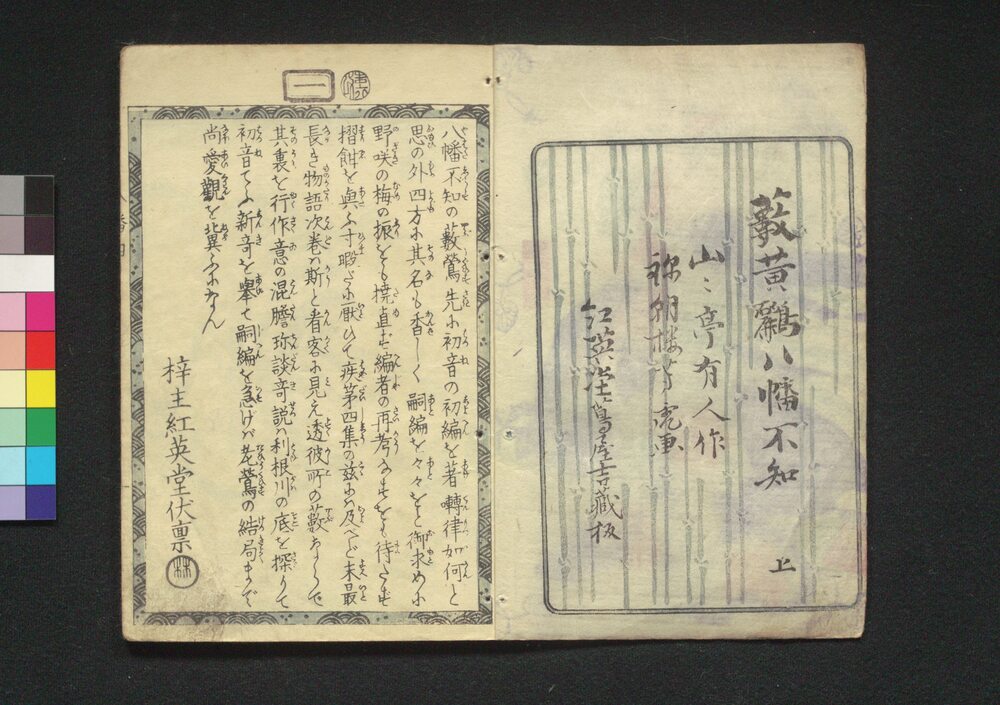 藪黄鸝八幡不知 上
山々亭有人作
紅英堂蔦屋吉藏板
一
八幡不知の藪鶯先に初音の初編を著囀律如何と
思の外四方に其名も香しく嗣編を々々をと御求めに
野咲の梅の振をも撓直さず編者の再考なすをも待たず
摺餌を與ふ寸暇さに厭ひて疾第四集の茲には及べど末最
長き物語次巻は斯と看客に見え透彼所の藪ならで
其裏を行作意の混膽珍談奇説は利根川の底を探りて
初音てふ新奇を擧て嗣編を急げば老鶯の結局まで
尚愛觀を冀ふになん
梓主紅英堂伏禀
林